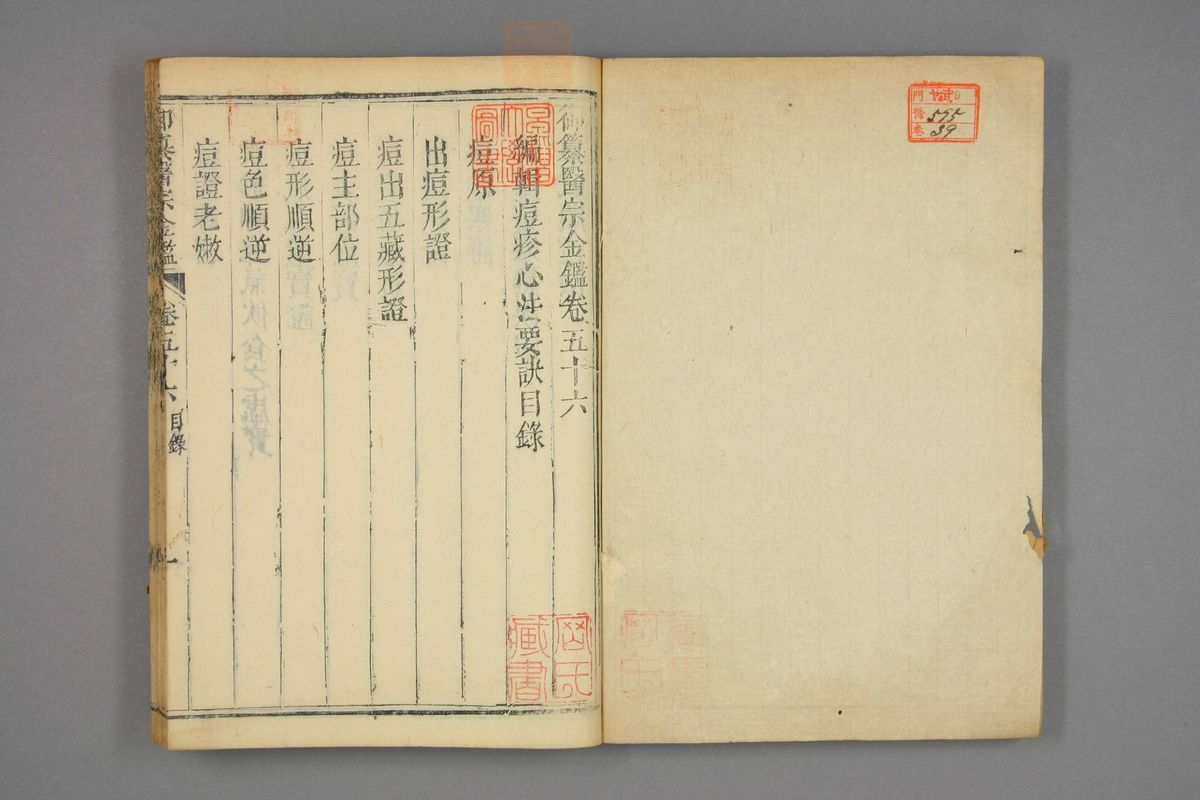 御纂醫宗金鑑卷五十六
編輯痘疹心法要訣目錄
痘原
出痘形證
痘出五藏形證
痘主部位
痘形順逆
痘色順逆
痘證老嫩
御纂醫宗金鑑
卷五十六
目錄
一
藏書
門
号
595
卷
39